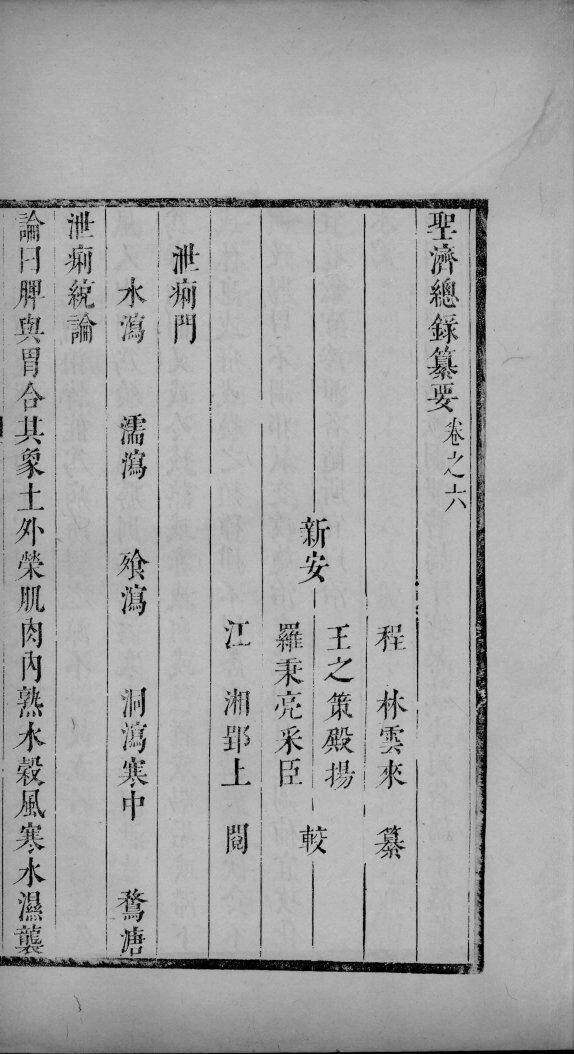 聖濟總錄纂要 卷之六
程 林雲來 纂
王之策殿揚
新安 較
羅秉亮采臣
江 湘郢上 閱
泄痢門
水瀉 濡瀉 飱瀉 洞瀉寒中 鶩溏
泄痢統論
論曰脾與胃合其象土外榮肌肉內熟水穀風寒水濕襲